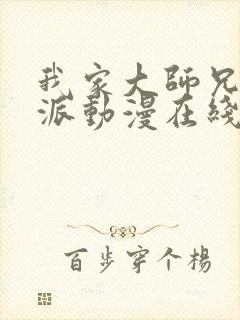 我家大師兄
派動漫在綫
百步穿个楊